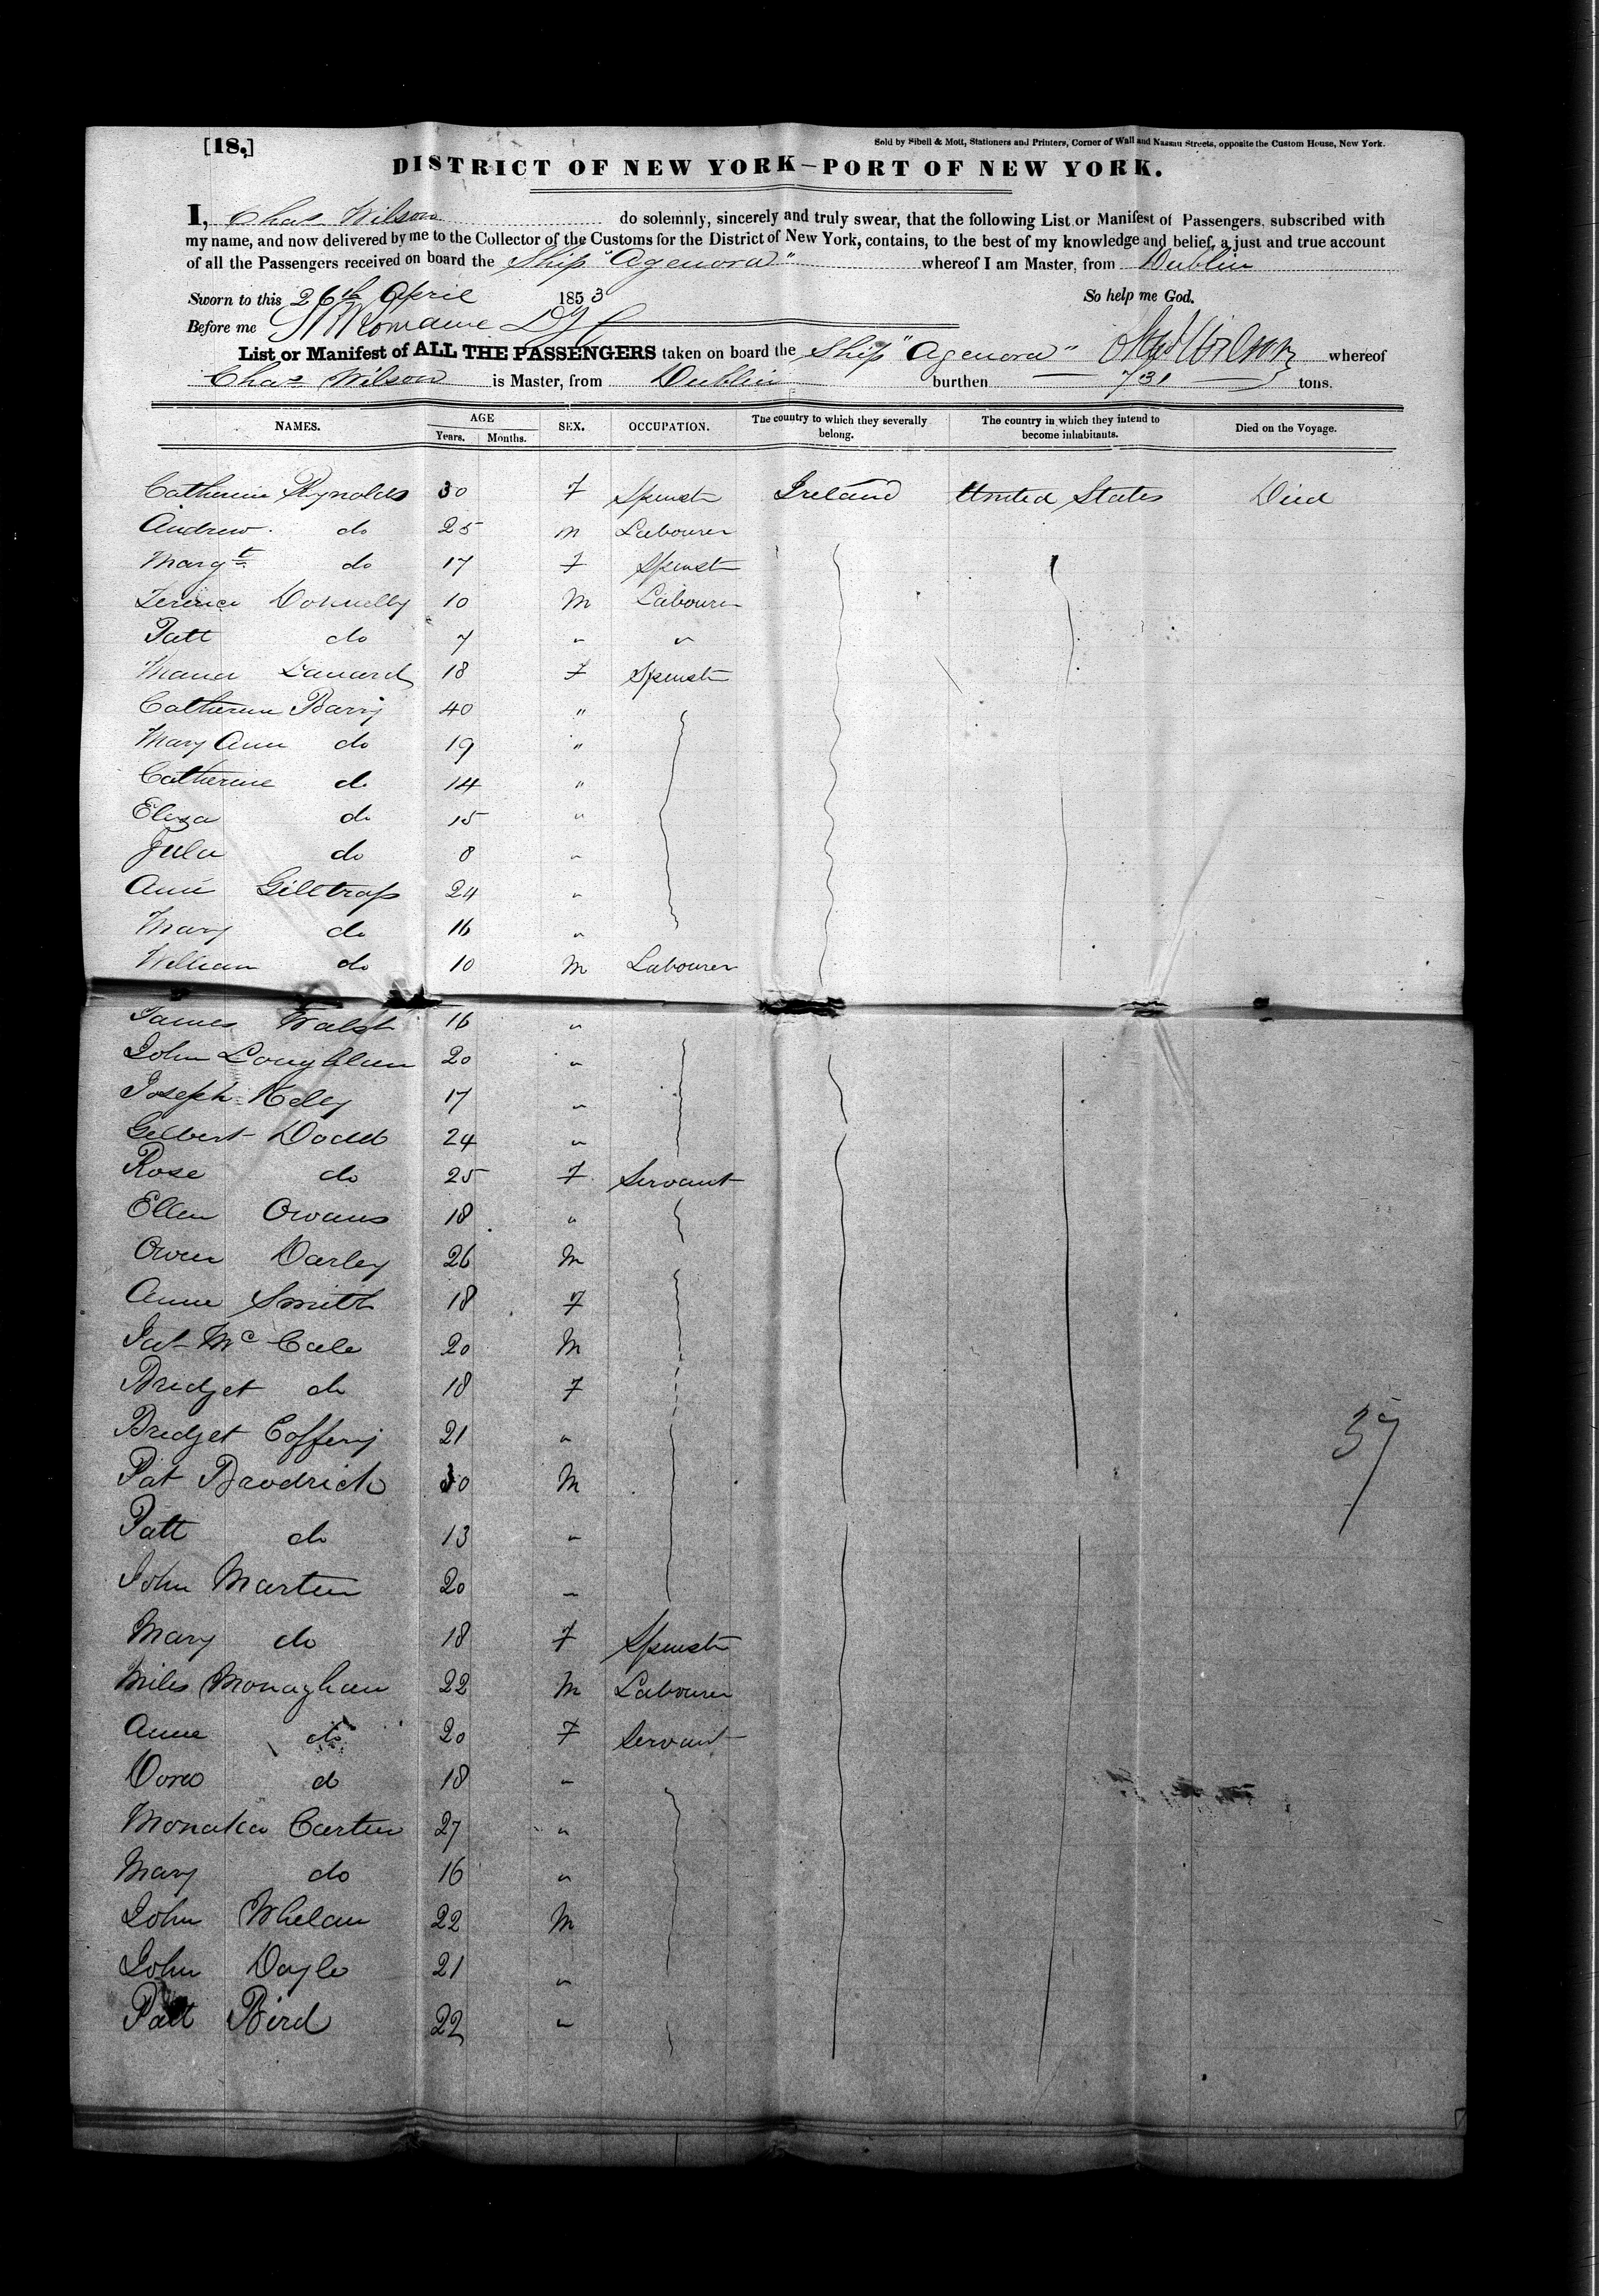 [18.]
Sold by Sibell & Mott, Stationers and Printers, Corner of Wall and Nassau Streets, opposite the Custom House, New York.
DISTRICT OF NEW YORK—PORT OF NEW YORK.
I, Chas Wilson do solemnly, sincerely and truly swear, that the following List or Manifest of Passengers, subscribed with
my name, and now delivered by me to the Collector of the Customs for the District of New York, contains, to the best of my knowledge and belief, a just and true account
of all the Passengers received on board the Ship "Agenora" whereof I am Master, from Dublin
Sworn to this 26th April 1853 So help me God.
Before me
List or Manifest of ALL THE PASSENGERS taken on board the Ship "Agenora" Chas Wilson whereof
Chas Wilson is Master, from Dublin burthen 731 tons.
NAMES. AGE Years. Months. SEX. OCCUPATION. The country to which they severally belong. The country in which they intend to become inhabitants. Died on the Voyage.
Catherine Reynolds 30 F Spinstr Ireland United States Died
Andrew do 25 M Labourer
Margt do 17 F Spinstr
Terence Donnelly 10 M Labourer
Patt do 7 " "
Maria 18 F Spinstr
Catherine Barry 40 "
Mary Ann do 19 "
Catherine do 14 "
Eliza do 15 "
Julia do 8 "
Ann Gilltrap 24 "
Mary do 16 "
William do 10 M Labourer
James Walsh 16 "
John Loughlin 20 "
Joseph Kelly 17 "
Gilbert Dodd 24 "
Rose do 25 F Servant
Ellen Owans 18 "
Owen Darley 26 M
Anne Smith 18 F
Pat McCale 20 M
Bridget do 18 F
Bridget Coffery 21 "
Pat Brodrick 30 M
Patt do 13 "
John Martin 20 "
Mary do 18 F Spinstr
Miles Monaghan 22 M Labourer
Anne do 20 F Servant
do 18 "
Monaka Carten 27 "
Mary do 16 "
John Whelan 22 M
John Doyle 21 "
Patt Bird 22 "
37